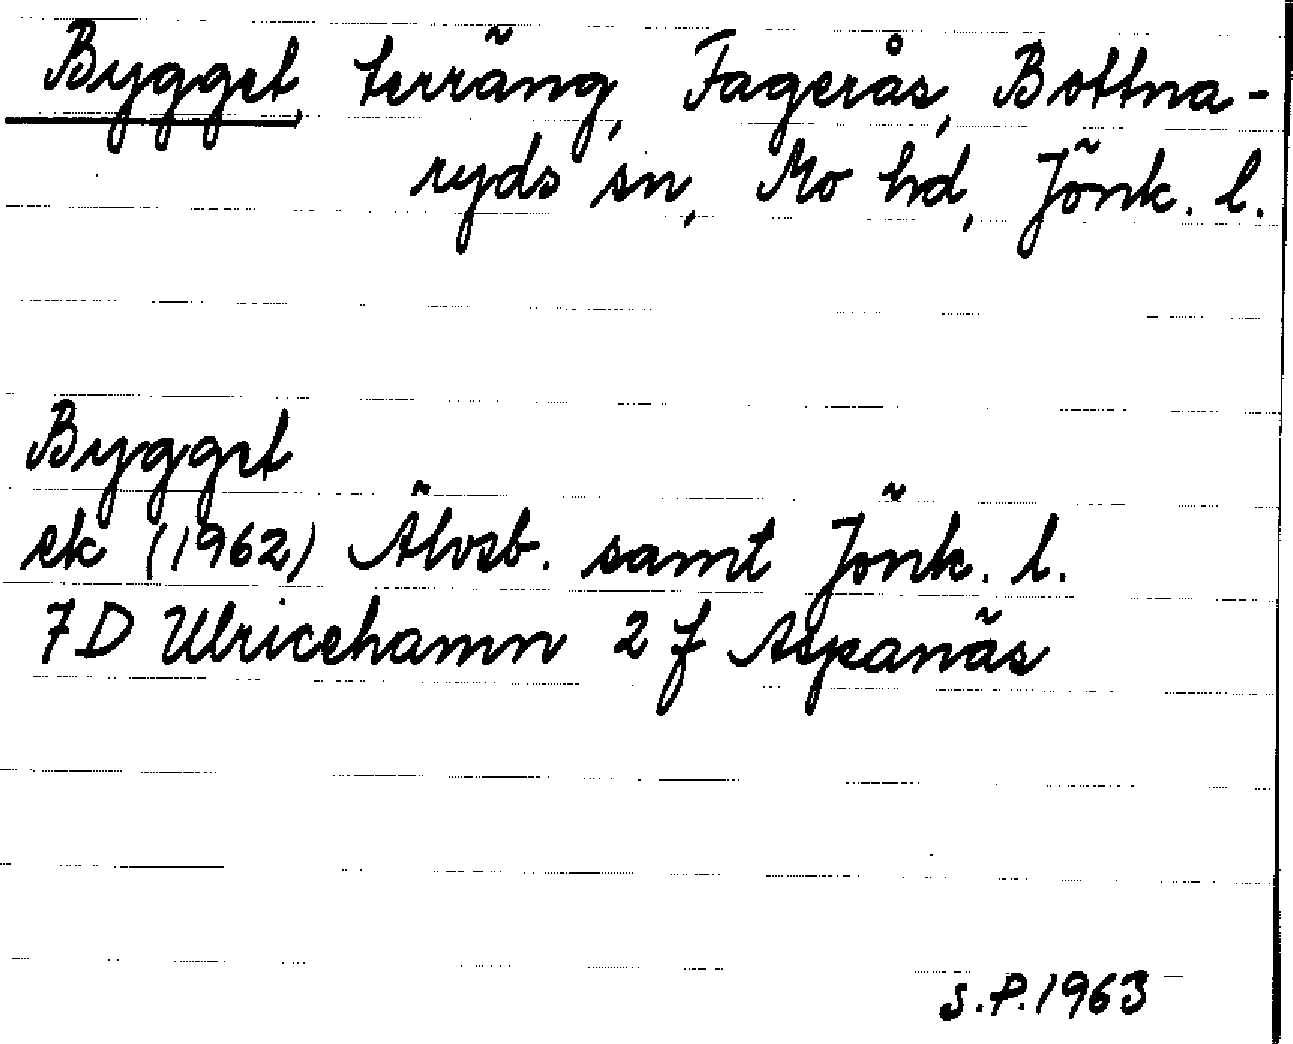 Bygget, terräng, Fagerås, Bottna-
ryds sn, Mo hd, Jönk. l.
Bygget
ek (1962) Älvsb. samt Jönk. l.
7D Ulricehamn 2 f Aspanäs
S.P.1963